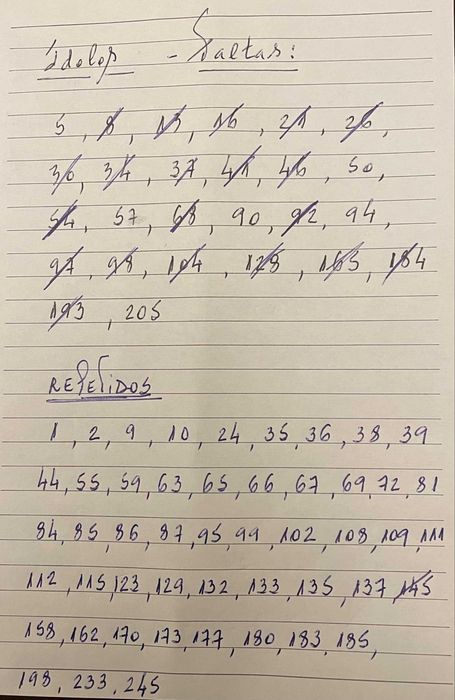 Ídolos - Faltas:
5, 8, 13, 16, 21, 26,
30, 34, 37, 41, 46, 50,
54, 57, 68, 90, 92, 94,
97, 98, 104, 128, 163, 184
193, 205
REPETIDOS
1, 2, 9, 10, 24, 35, 36, 38, 39
44, 55, 59, 63, 65, 66, 67, 69, 72, 81
84, 85, 86, 87, 95, 99, 102, 108, 109, 111
112, 115, 123, 129, 132, 133, 135, 137, 145
158, 162, 170, 173, 177, 180, 183, 185,
198, 233, 245